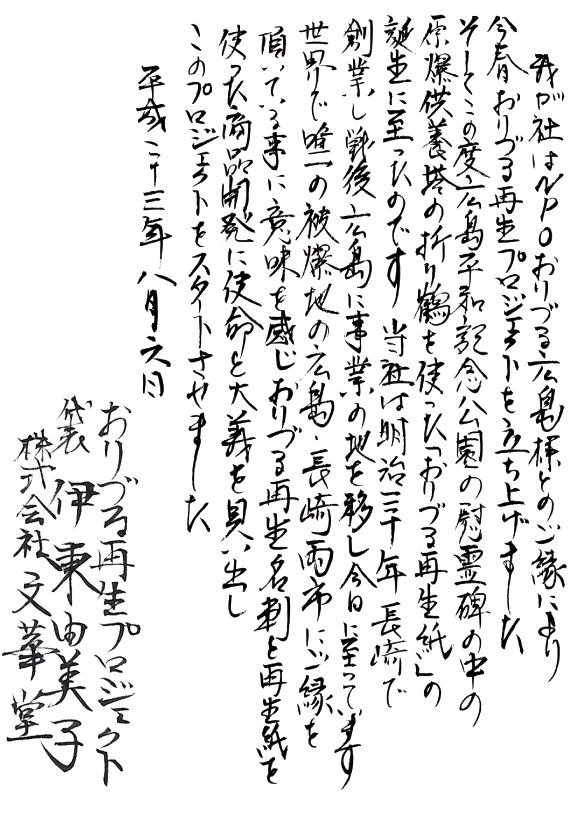 我が社はNPOおりづる広島様とのご縁により
今春おりづる再生プロジェクトを立ち上げました
そしてこの度広島平和記念公園の慰霊碑の中の
原爆供養塔の折り鶴を使った「おりづる再生紙」の
誕生に至ったのです 当社は明治三十年長崎で
創業し戦後広島に事業の地を移し今日に至っています
世界で唯一の被爆地の広島・長崎両市にご縁を
頂いている事に意味を感じおりづる再生名刺と再生紙を
使った商品開発に使命と大義を見い出し
このプロジェクトをスタートさせました
平成二十三年八月六日
おりづる再生プロジェクト
代表 伊東由美子
株式会社文華堂